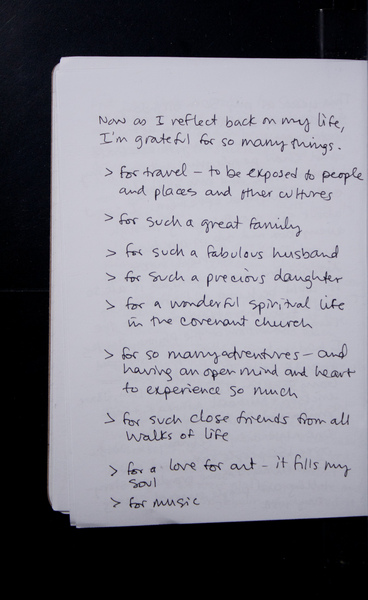 Now as I reflect back on my life,
I'm grateful for so many things.
> for travel – to be exposed to people
and places and other cultures
> for such a great family
> for such a fabulous husband
> for such a precious daughter
> for a wonderful spiritual life
in the covenant church
> for so many adventures – and
having an open mind and heart
to experience so much
> for such close friends from all
walks of life
> for a love for art – it fills my
soul
> for music